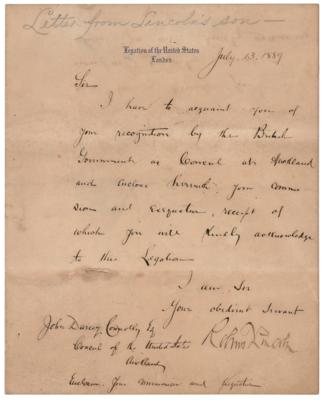 Letter from Lincoln's son -
Legation of the United States
London
July. 13. 1889
Sir
I have to acquaint you of
your recognition by the British
Government as Consul at Auckland
and enclose herewith your commis
sion and exequatur, receipt of
which you will kindly acknowledge
to this Legation
I am Sir
Your obedient servant
Robert T. Lincoln
John Darcey Connolly Esq
Consul of the United States
Auckland
Enclosure. Your commission and Exequatur